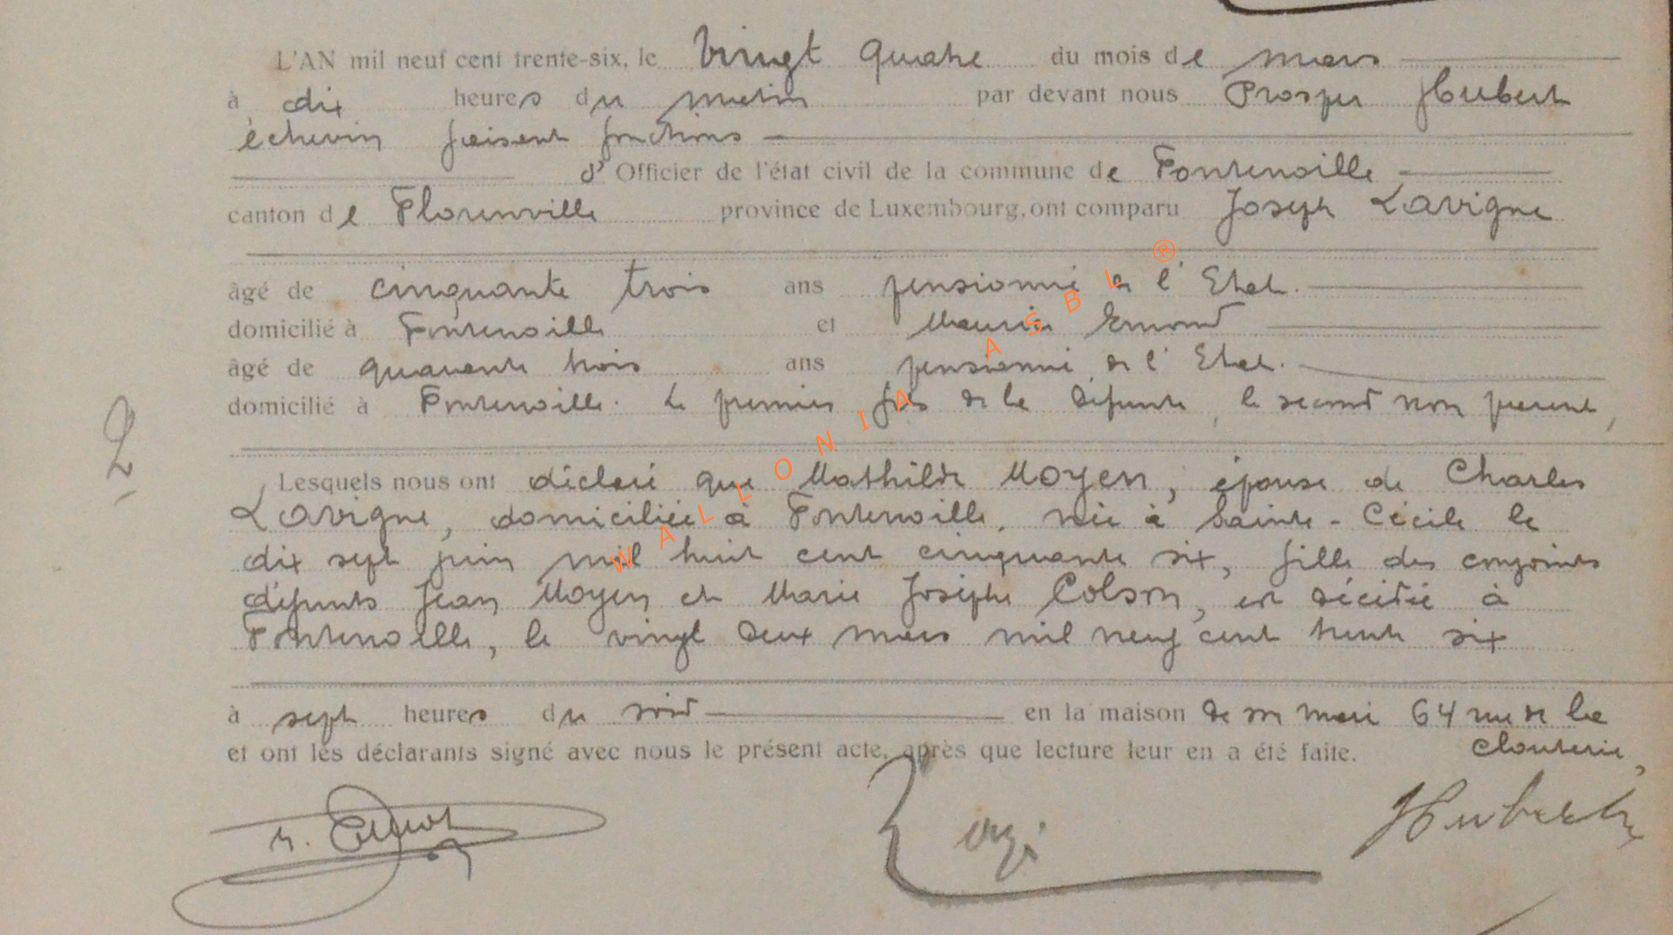 L'AN mil neuf cent trente-six, le Vingt quatre du mois de mars
à dix heures du matin par devant nous Prosper Hubert
échevin faisant fonctions
d'Officier de l'état civil de la commune de Fontenoille
canton de Florenville province de Luxembourg, ont comparu Joseph Lavigne
âgé de cinquante trois ans pensionné de l'Etat.
domicilié à Fontenoille et Maurice Emond
âgé de quarante trois ans pensionné de l'Etat.
domicilié à Fontenoille. Le premier fils de la défunte, le second non parent,
2
Lesquels nous ont déclaré que Mathilde Moyen, épouse de Charles
Lavigne, domiciliée à Fontenoille, née à Sainte-Cécile le
dix sept juin mil huit cent cinquante six, fille des conjoints
défunts Jean Moyen et Marie Josèphe Colson, est décédée à
Fontenoille, le vingt deux mars mil neuf cent trente six
à sept heures du soir en la maison de son mari 64 rue de la
et ont les déclarants signé avec nous le présent acte, après que lecture leur en a été faite. Clouterie,
Hubert
WALLONIA ASBL ®